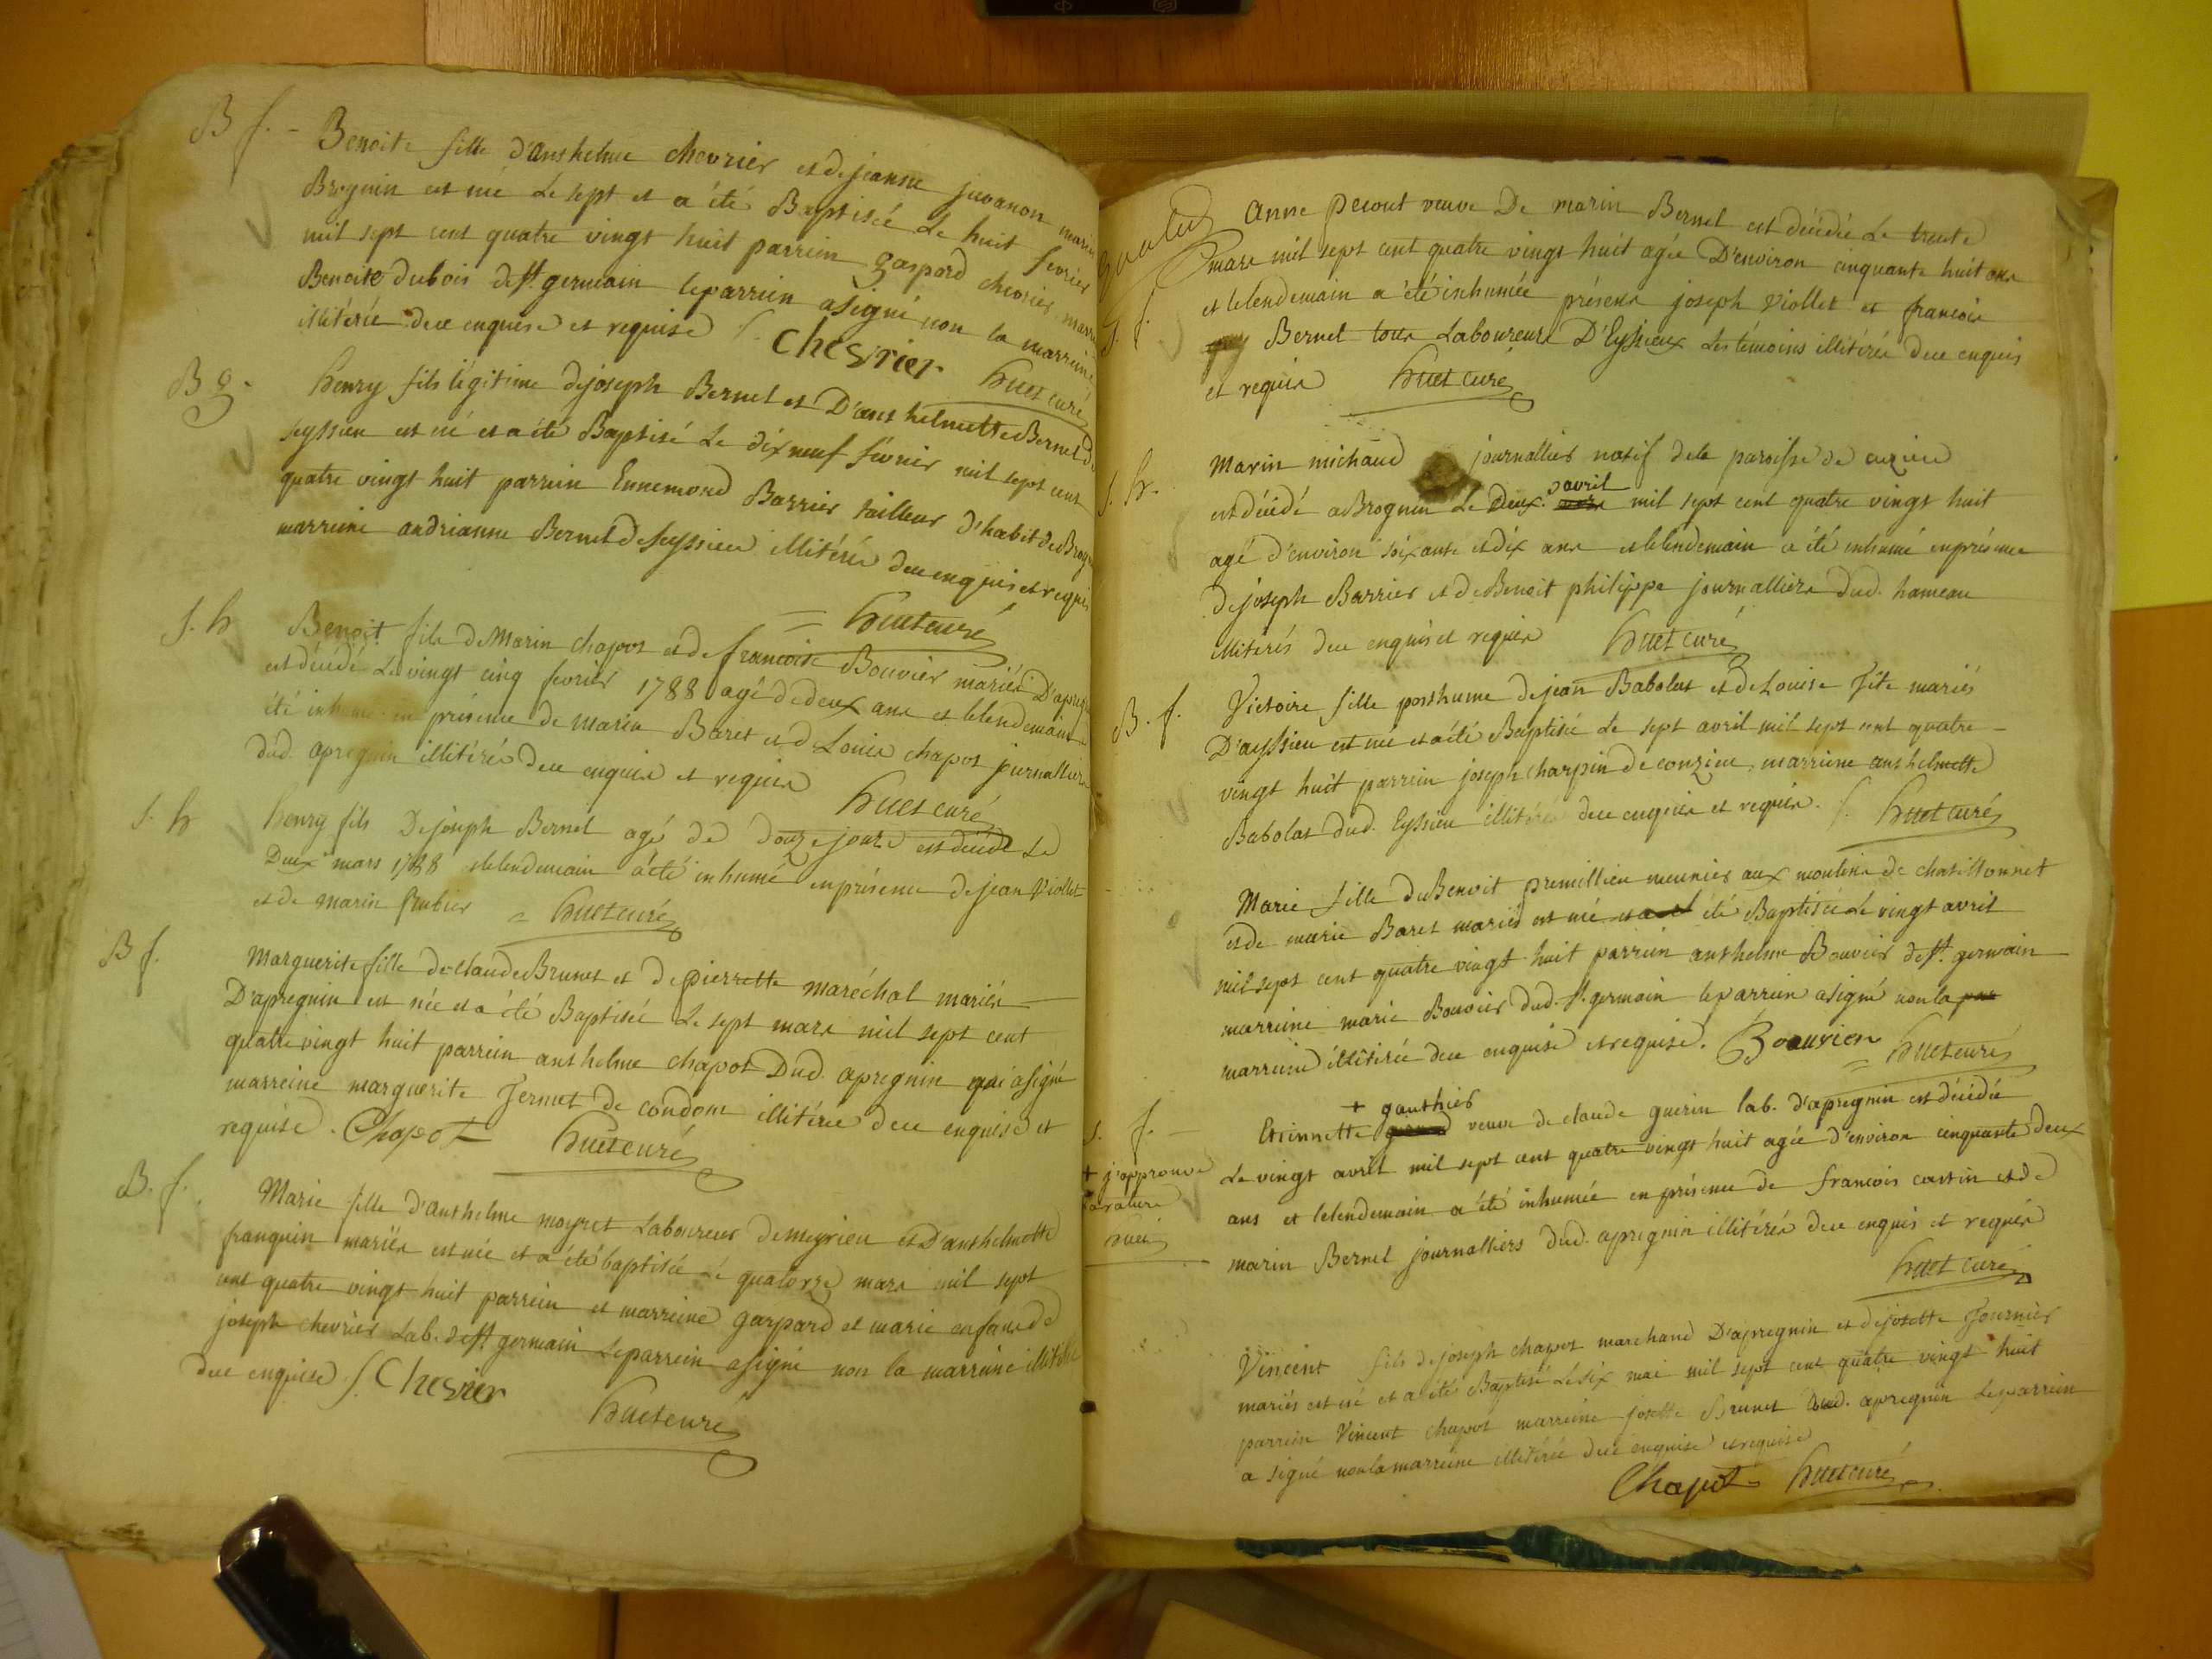 B f. - Benoite fille d'anthelme chevrier et de jeanne juvanon mariés
Brognin est née Le sept et a été Baptisée Le huit fevrier
mil sept cent quatre vingt huit parrein gaspard chevrier marr
Benoite dubois de st. germain le parrein a signé non la marreine
illitérée de ce enquise et requise /. Chevrier huet curé
B g. henry fils légitime de joseph Bernel et D'anthelmette Bernel de
seyssieu est né et a été Baptisé Le dix neuf fevrier mil sept cent
quatre vingt huit parrein Ennemond Barrier tailleur d'habit de Brogn
marreine andrianne Bernel de seyssieu illitérés de ce enquis et requis
= huet curé
s. h Benoit fils de Marin chapot et de francoise Bouvier mariés D'apregn
est décédé Le vingt cinq fevrier 1788 agé de deux ans et le lendemain a
été inhumé en présence de marin Baret et de Louis chapot journalliers
dud. apregnin illitérés de ce enquis et requis huet curé
s. h henry fils De joseph Bernel agé de douze jours est décédé Le
Deux mars 1788 et le lendemain a été inhumé en présence de jean Viollet
et de marin = huet curé
B f. Marguerite fille de claude Brunet et de pierrette maréchal mariés
D'apregnin est née et a été Baptisée Le sept mars mil sept cent
quatre vingt huit parrein anthelme chapot Dud. apregnin qui a signé
marreine marguerite Jernet de condom illitérée de ce enquise et
requise. Chapot huet curé
B. f. Marie fille d'anthelme moyret Laboureur de meyrieu et D'anthelmette
franquin mariés est née et a été baptisée Le quatorze mars mil sept
cent quatre vingt huit parrein et marreine gaspard et marie enfans de
joseph chevrier Lab. de st. germain Le parrein a signé non la marreine illitérée
de ce enquise /. Chevrier
huet curé
anne pecout veuve De marin Bernel est décédée Le trente
s. f. mars mil sept cent quatre vingt huit agée D'environ cinquante huit ans
et le lendemain a été inhumée présens joseph Viollet et francois
Bernel tous Laboureurs D'Eyssieux Les témoins illitérés de ce enquis
et requis huet curé
s. h. Marin michaud journallier natif de la paroisse de cuzieu
est décédé a Brognin Le Deux avril mil sept cent quatre vingt huit
agé d'environ soixante et dix ans et le lendemain a été inhumé en présence
De joseph Barrier et de Benoit philippe journalliers dud. hameau
illitérés de ce enquis et requis huet curé
B. f. Victoire fille posthume de jean Babolat et de Louise fète mariés
D'ayssieu est née et a été Baptisée Le sept avril mil sept cent quatre -
vingt huit parrein joseph charpin de conzieu marreine anthelmette
Babolat dud. Eyssieu illitérés de ce enquis et requis. /. huet curé
Marie fille de Benoit premillieu meunier aux moulins de chatillonnet
et de marie Baret mariés est née et a été Baptisée Le vingt avril
mil sept cent quatre vingt huit parrein anthelme Bouvier de st. germain
marreine marie Bouvier dud. st. germain le parrein a signé non la par
marreine illitérée de ce enquise et requise. Bouvier = huet curé
+ gauthier
s. f. - Etiennette veuve de claude guerin lab. d'apregnin est décédée
Le vingt avril mil sept cent quatre vingt huit agée d'environ cinquante deux
ans et le lendemain a été inhumée en présence de francois cartin et de
marin Bernel journalliers dud. apregnin illitérés de ce enquis et requis
+ j'approuve
la rature
huet
huet curé
Vincent fils de joseph chapot marchand D'apregnin et de josette fournier
mariés est né et a été Baptisé Le six mai mil sept cent quatre vingt huit
parrein Vincent chapot marreine josette Brunet dud. apregnin Le parrein
a signé non la marreine illitérée de ce enquise et requise
Chapot huet curé